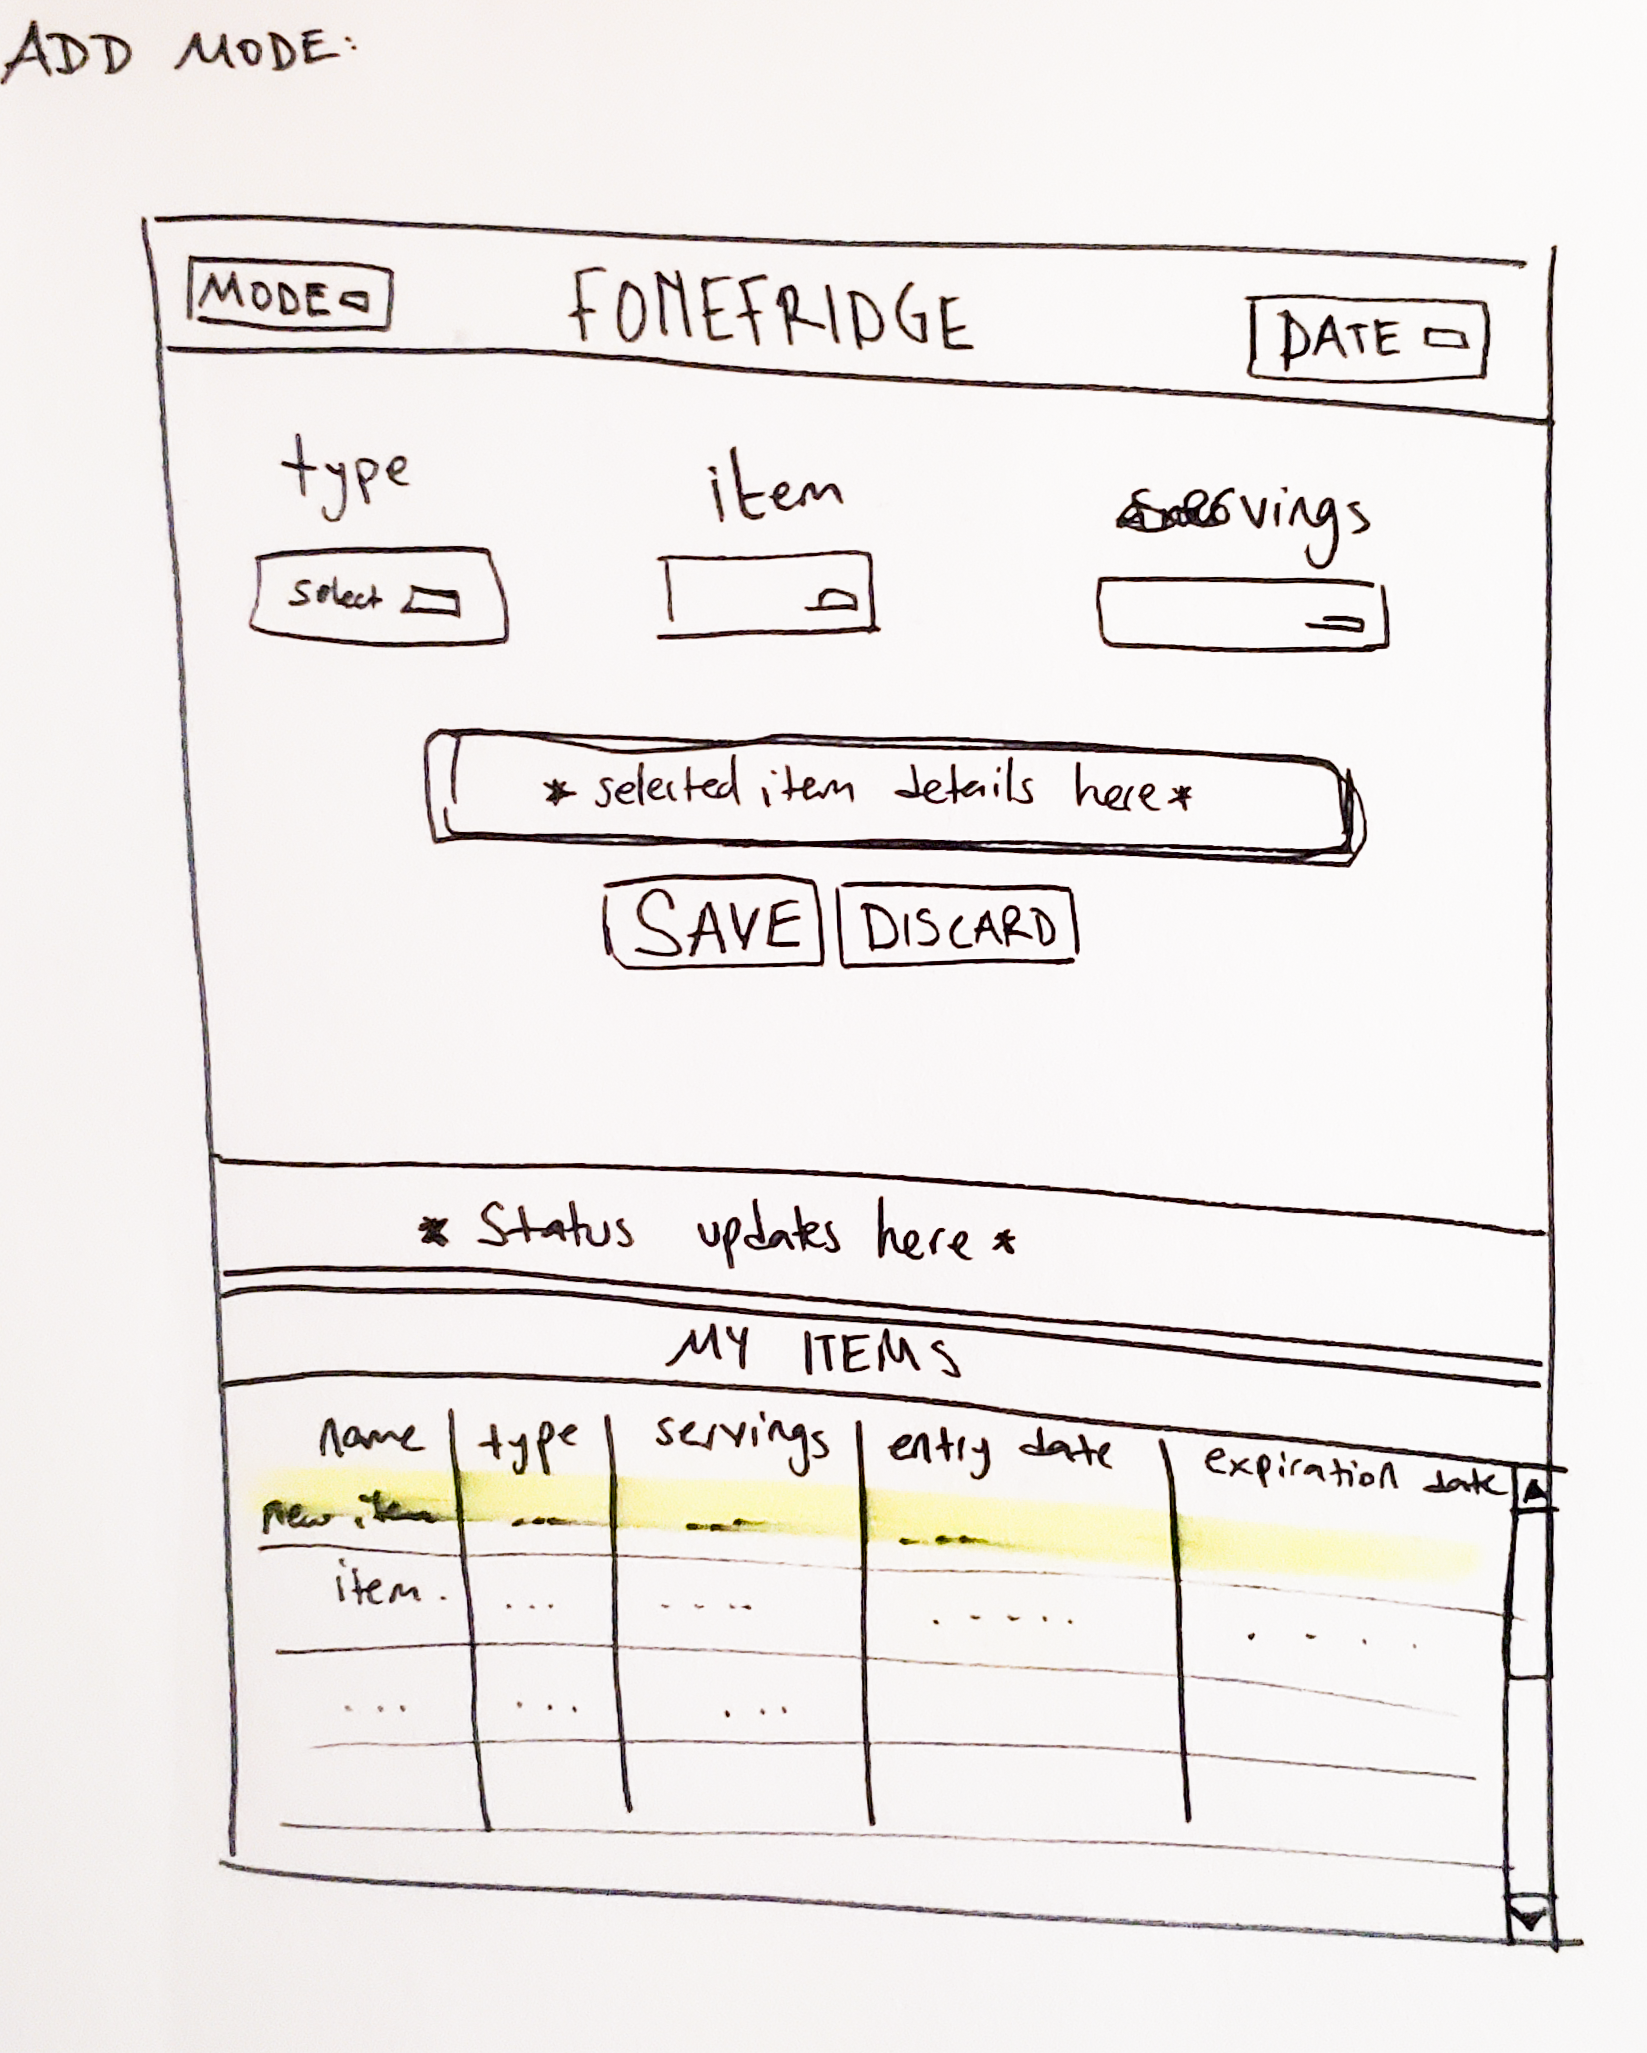 ADD MODE:
MODE FOMEFRIDGE DATE
type item servings
Select
* selected item details here *
SAVE DISCARD
* Status updates here *
MY ITEMS
name type servings entry date expiration date
new item --- --- ---
item. ... .... ..... ....
... ... ...